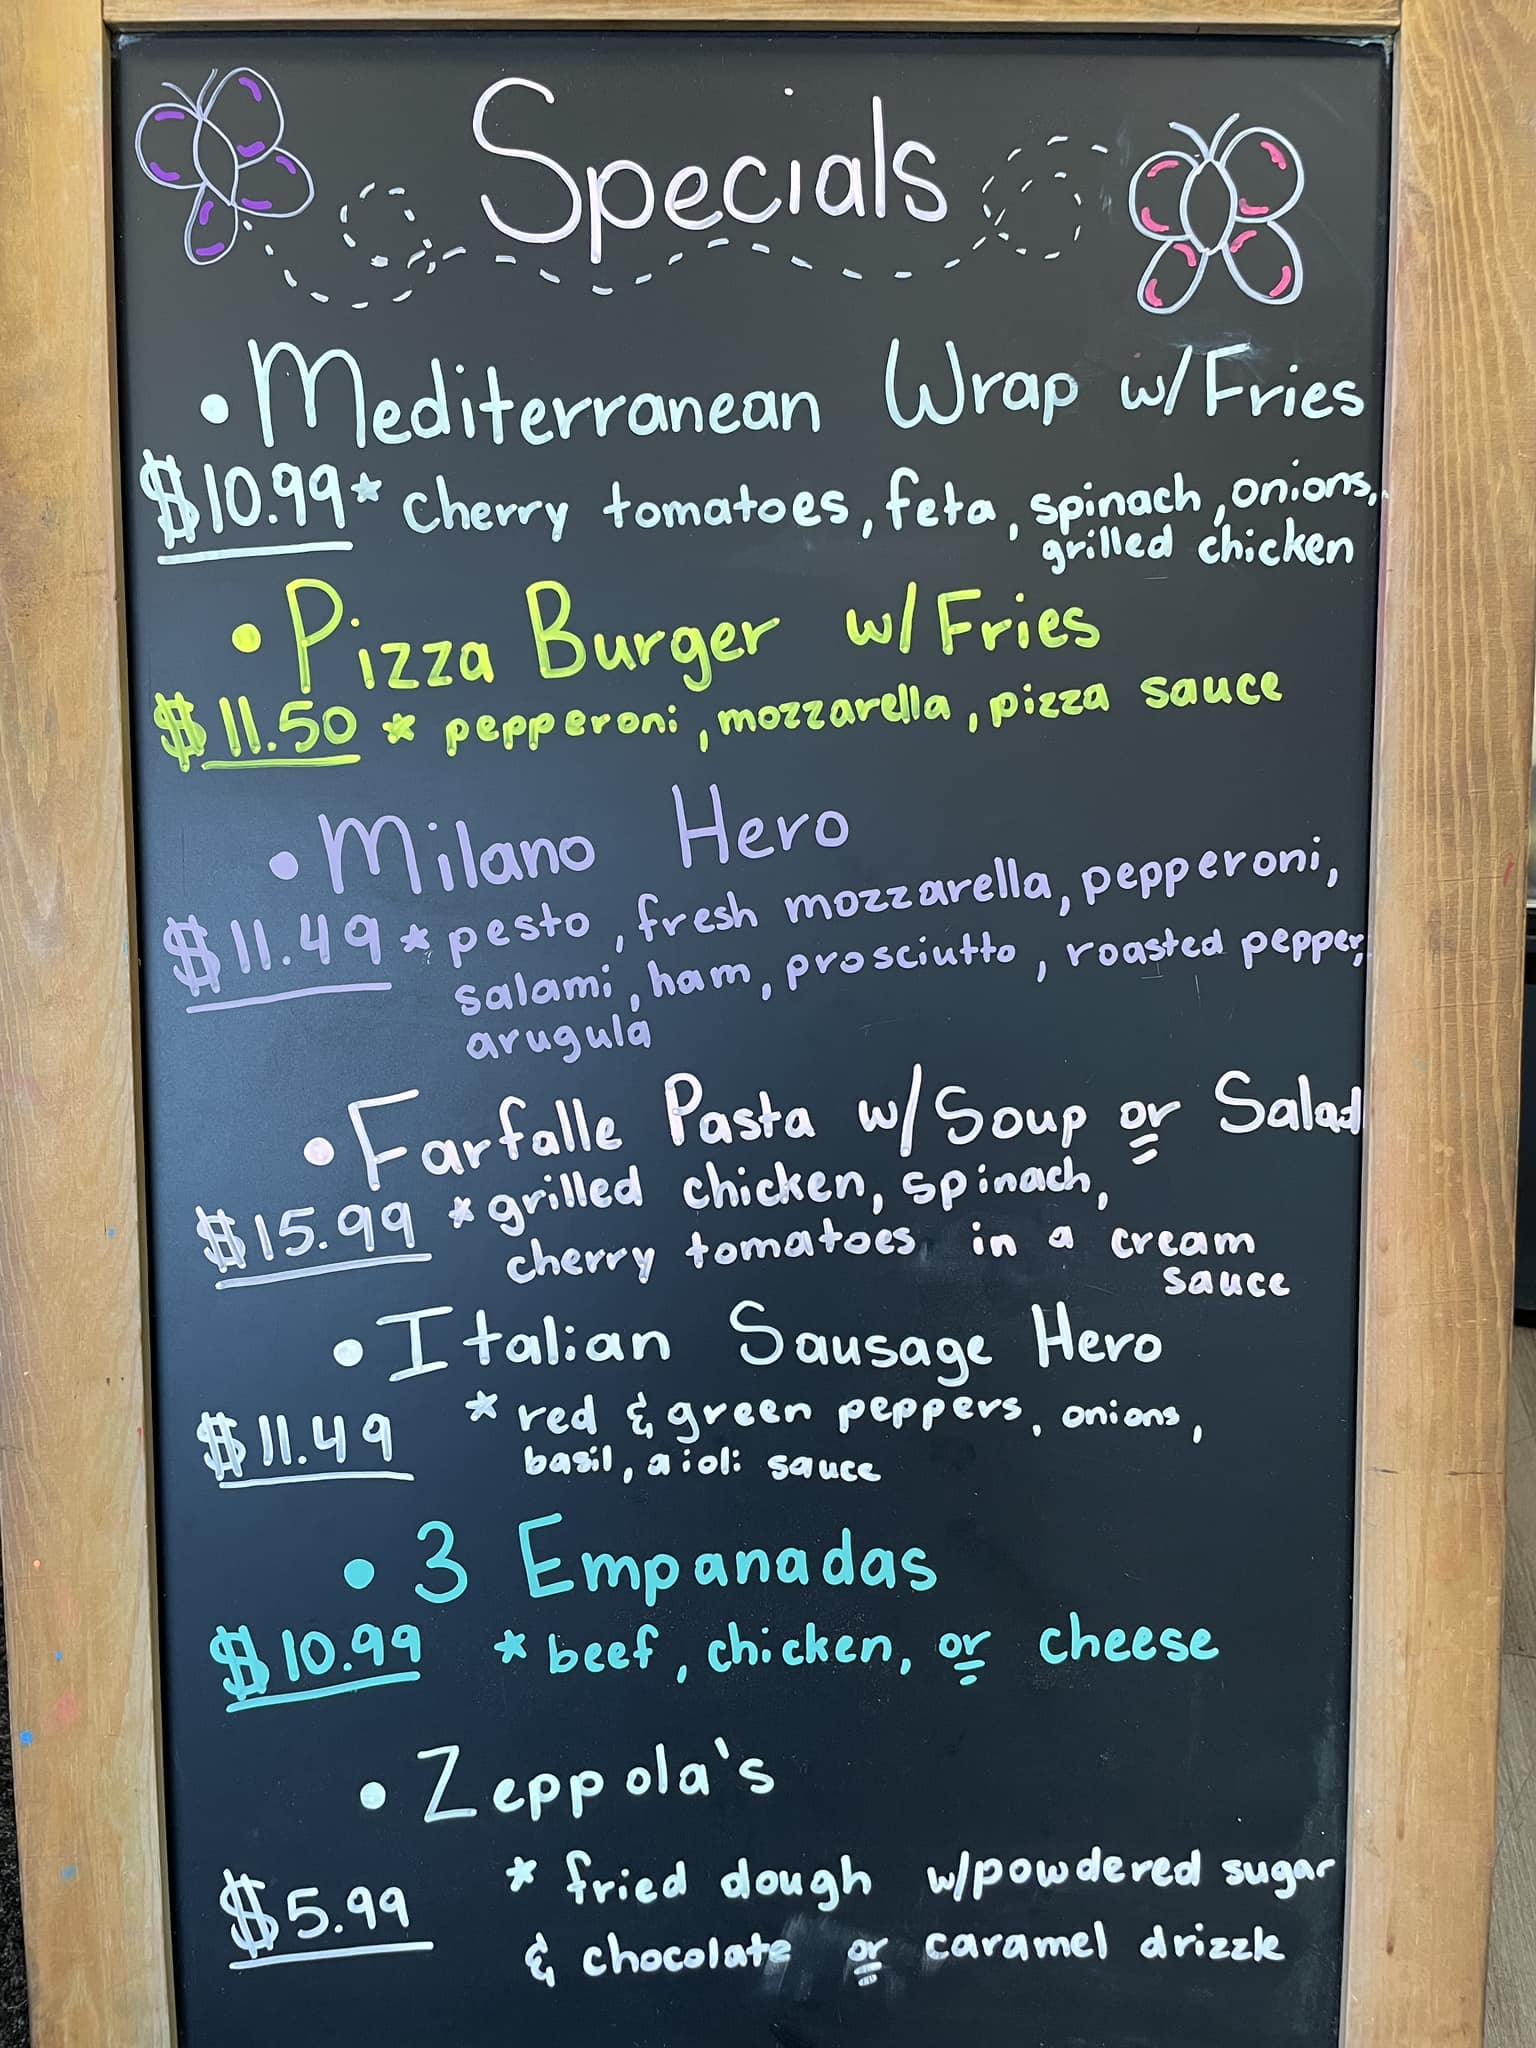 Specials
• Mediterranean Wrap w/Fries
$10.99 * cherry tomatoes, feta, spinach, onions,
grilled chicken
• Pizza Burger w/Fries
$11.50 * pepperoni, mozzarella, pizza sauce
• Milano Hero
$11.49 * pesto, fresh mozzarella, pepperoni,
salami, ham, prosciutto, roasted pepper,
arugula
• Farfalle Pasta w/Soup or Salad
$15.99 * grilled chicken, spinach,
cherry tomatoes in a cream
sauce
• Italian Sausage Hero
$11.49 * red & green peppers, onions,
basil, aioli sauce
• 3 Empanadas
$10.99 * beef, chicken, or cheese
• Zeppola's
$5.99 * fried dough w/powdered sugar
& chocolate or caramel drizzle